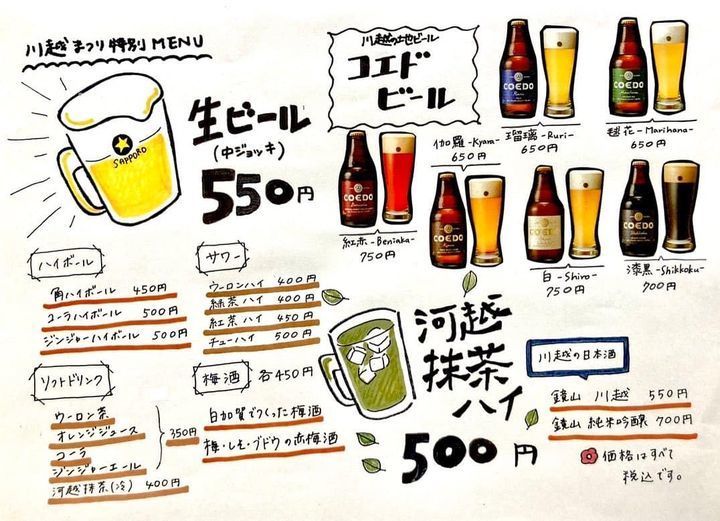 川越まつり特別MENU
SAPPORO
生ビール
(中ジョッキ)
550円
川越の地ビール
コエド
ビール
COEDO
瑠璃-Ruri-
650円
COEDO
毬花-Marihana-
650円
COEDO
紅赤-Beniaka-
750円
伽羅-Kyara-
650円
COEDO
COEDO
白-Shiro-
750円
COEDO
漆黒-Shikkoku-
700円
ハイボール
角ハイボール 450円
コーラハイボール 500円
ジンジャーハイボール 500円
サワー
ウーロンハイ 400円
緑茶ハイ 400円
紅茶ハイ 450円
チューハイ 500円
ソフトドリンク
ウーロン茶
オレンジジュース
コーラ
ジンジャーエール
350円
河越抹茶(冷) 400円
梅酒 各450円
白加賀でつくった梅酒
梅・しそ・ブドウの赤梅酒
河越
抹茶
ハイ
500円
川越の日本酒
鏡山 川越 550円
鏡山 純米吟醸 700円
価格はすべて
税込です。